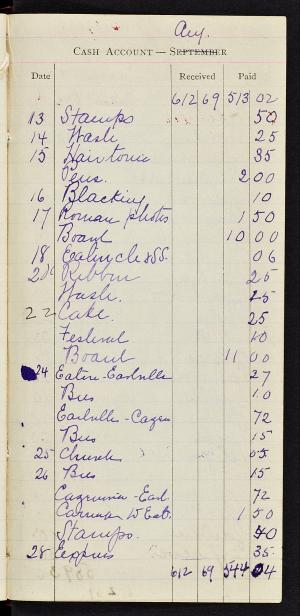 Aug.
CASH ACCOUNT — SEPTEMBER
Date Received Paid
612 69 513 02
13 Stamps 50
14 Wash 25
15 Hair tonic 35
Pens. 2 00
16 Blacking 10
17 Roman photos 1 50
Board 10 00
18 06
20 Ribbon 25
Wash. 25
22 Cake. 25
Festival 10
Board 11 00
24 27
Bus 10
72
Bus 15
25 Church 05
26 Bus 15
72
1 50
Stamps. 40
28 Express 35
612 69 544 04